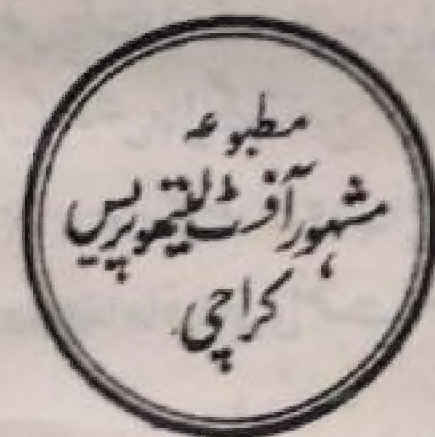 مطبوعہ
مشہور آفسٹ لیتھو پریس
کراچی